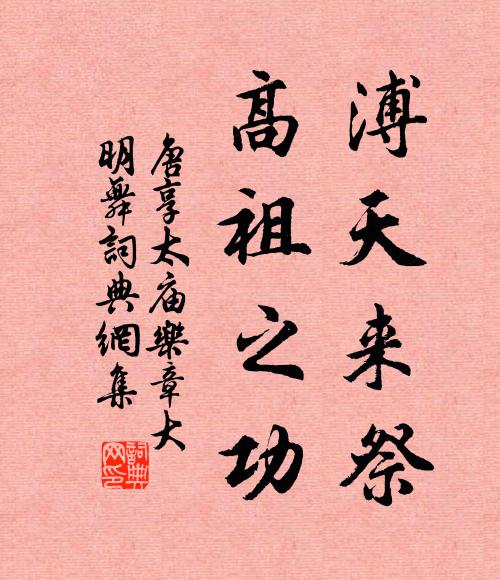 溥天来祭
高祖之功
唐享太庙樂章大
明舞詞典網集
詞典
网印